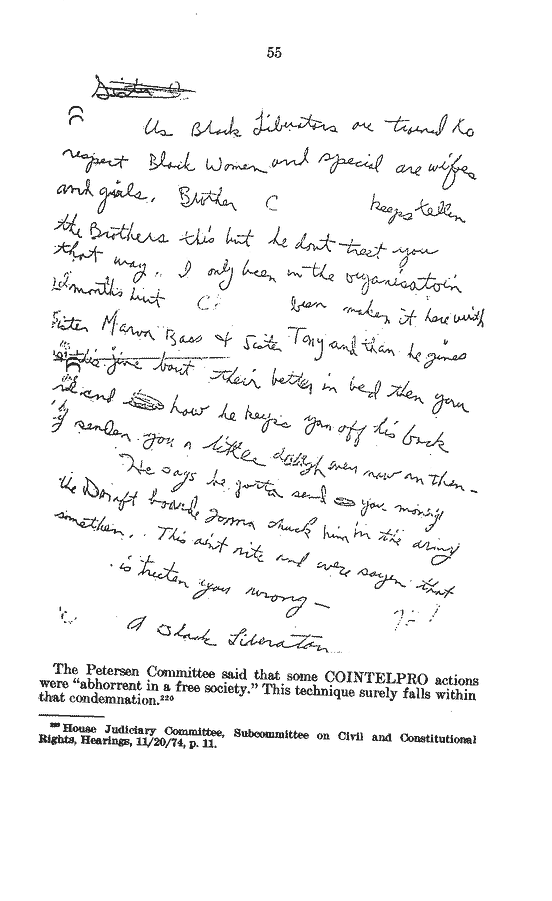 55
Us Black Liberators are trained to
respect Black Women and special are wifes
and girls. Brother C keeps tellen
the Brothers this but he dont treat you
that way. I only been in the organisatoin
2 months but C been maken it here with
Sister Marva Bass & Sister Tony and than he gives
us this jive bout their better in bed then you
and how he keeps you off his back
by senden you a little dough ever now an then -
He says he gotta send you money
the Draift boards gonna chuck him in the army
somethen. This aint rite and were sayen that
is treten you wrong -
A Black Liberator
The Petersen Committee said that some COINTELPRO actions
were "abhorrent in a free society." This technique surely falls within
that condemnation.²²⁰
²²⁰ House Judiciary Committee, Subcommittee on Civil and Constitutional
Rights, Hearings, 11/20/74, p. 11.